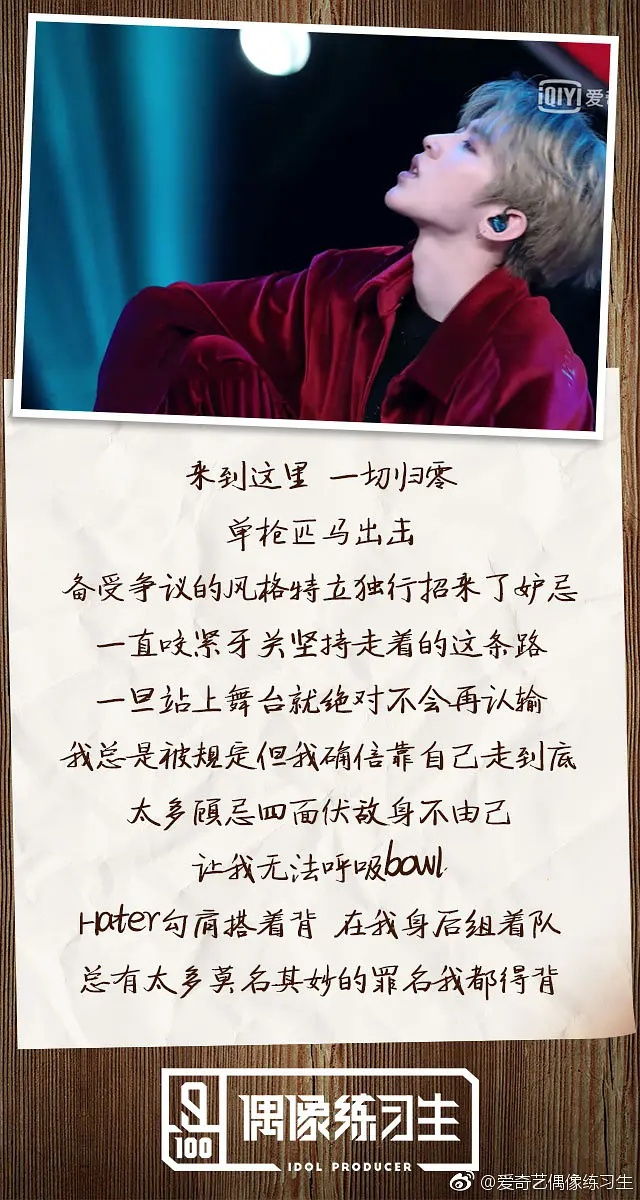 iQIYI 爱奇
来到这里 一切归零
单枪匹马出击
备受争议的风格特立独行招来了妒忌
一直咬紧牙关坚持走着的这条路
一旦站上舞台就绝对不会再认输
我总是被规定但我确信靠自己走到底
太多顾忌四面伏敌身不由己
让我无法呼吸bowl
Hater勾肩搭着背 在我身后组着队
总有太多莫名其妙的罪名我都得背
100
偶像练习生
IDOL PRODUCER
@爱奇艺偶像练习生